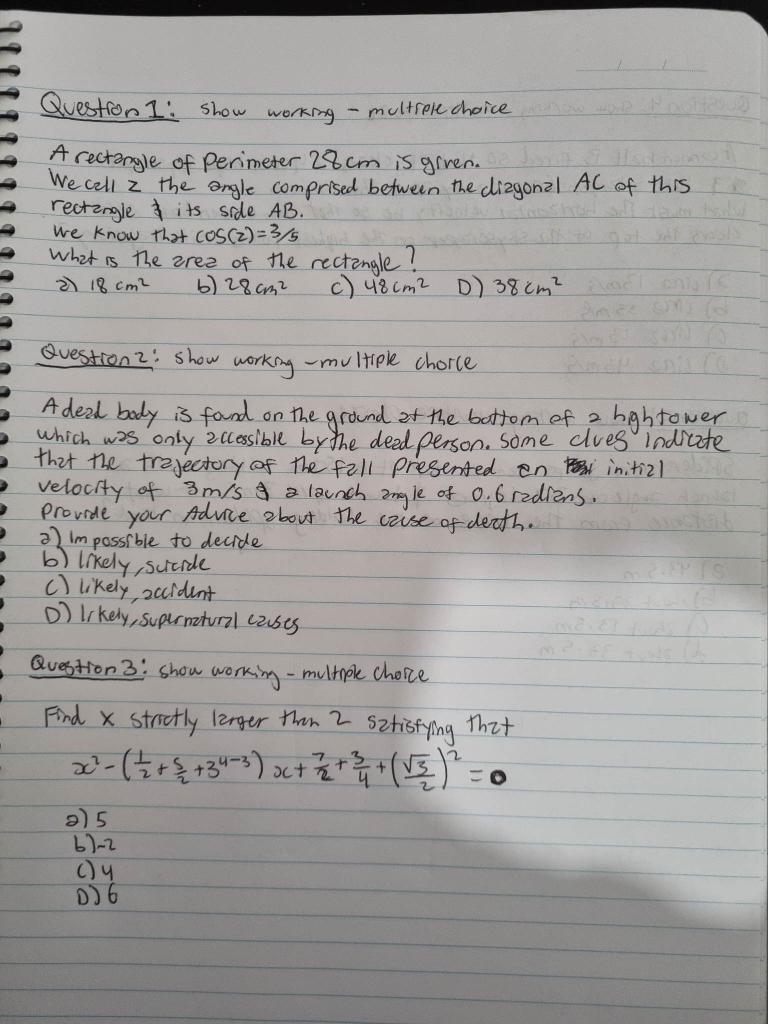 Question 1: show working - multiple choice
A rectangle of perimeter 28cm is given.
We call z the angle comprised between the diagonal AC of this
rectangle & its side AB.
We know that cos(z) = 3/5
What is the area of the rectangle?
a) 18 cm² b) 28 cm² c) 48 cm² D) 38 cm²
Question 2: show working - multiple choice
A dead body is found on the ground at the bottom of a high tower
which was only accessible by the dead person. some clues indicate
that the trajectory of the fall presented an initial
velocity of 3m/s & a launch angle of 0.6 radians.
Provide your Advice about the cause of death.
a) Impossible to decide
b) likely, suicide
c) likely, accident
D) likely, supernatural causes
Question 3: show working - multiple choice
Find x strictly larger than 2 satisfying that
x² - (1/2 + 5/2 + 3⁴⁻³) x + 7/2 + 3/4 + (√3/2)² = 0
a) 5
b) -2
c) 4
D) 6